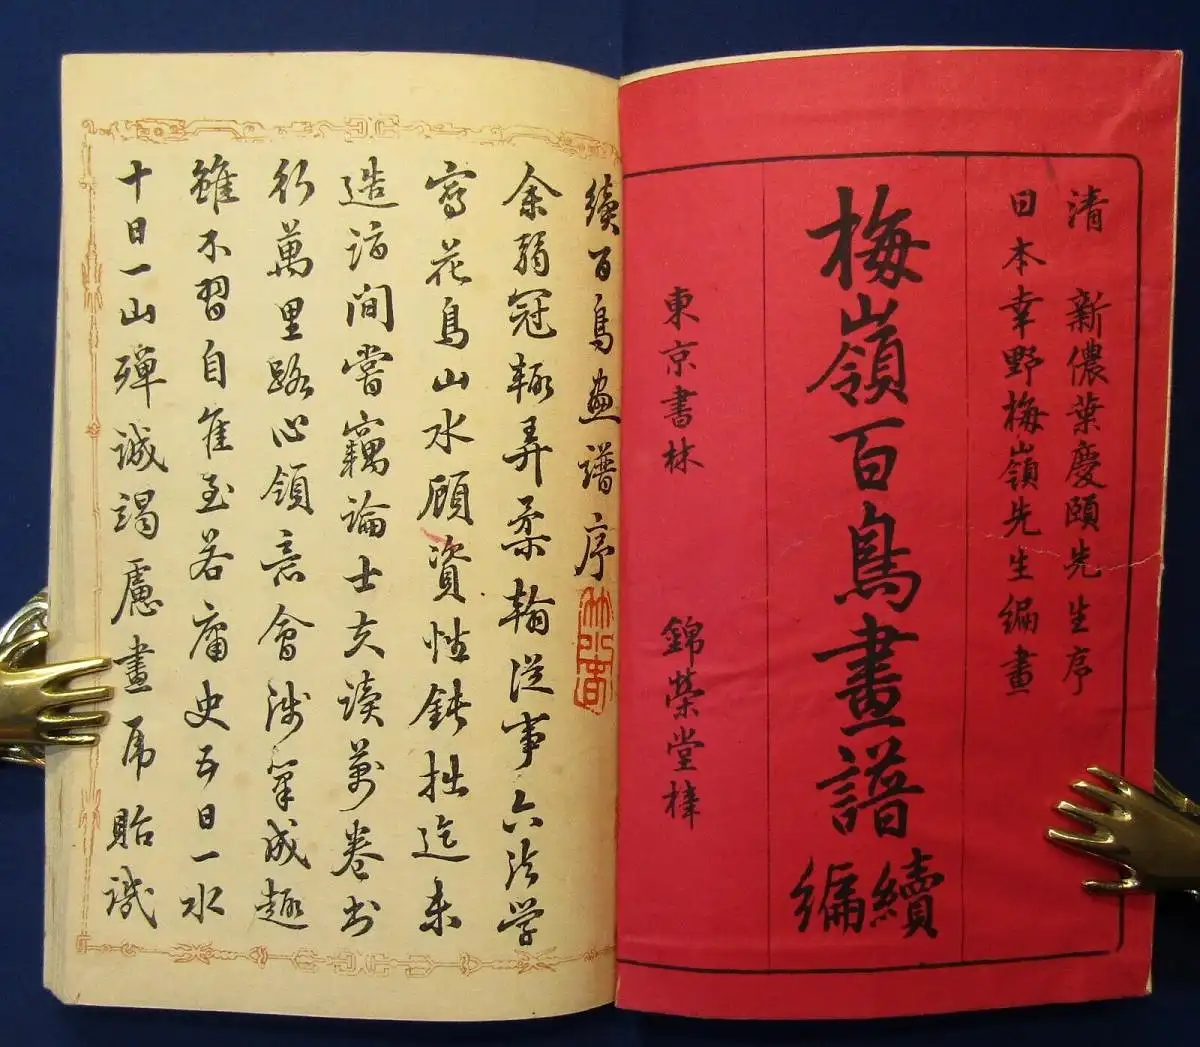 清 新儂葉慶頤先生序
日本幸野梅嶺先生編畫
梅嶺百鳥畫譜
續編
東京書林 錦榮堂梓
續百鳥畫譜序
余弱冠輒弄柔翰從事六法学
寫花鳥山水顧資性鈍拙迄未
造詣間嘗竊論士夫读萬卷书
行萬里路心領意會涉筆成趣
雖不習自佳至若庸史五日一水
十日一山殫誠竭慮畫虎貽譏